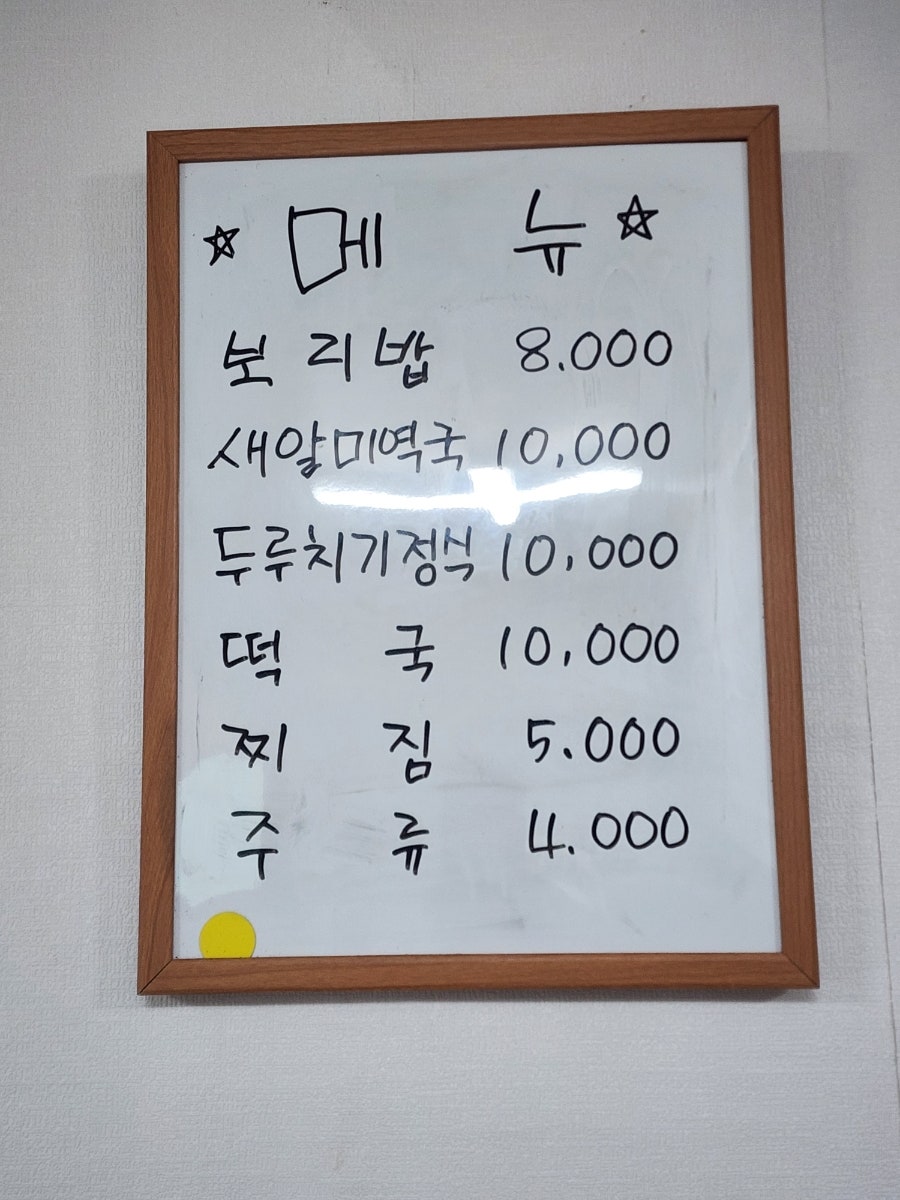 ☆ 메 뉴 ☆
보리밥 8.000
새알미역국 10,000
두루치기정식 10,000
떡 국 10,000
찌 짐 5.000
주 류 4.000